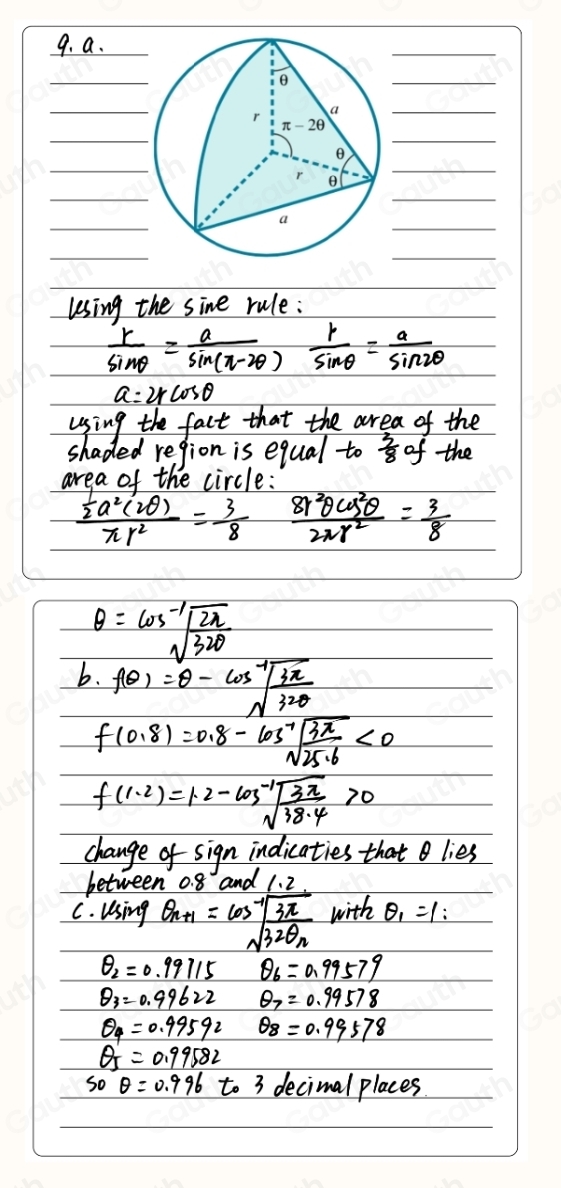 9. a.
θ
a
r
π − 2θ
θ
r
θ
a
Using the sine rule:
r/sinθ = a/sin(π-2θ) r/sinθ = a/sin2θ
a=2rcosθ
using the fact that the area of the
shaded region is equal to 3/8 of the
area of the circle:
½a²(2θ)/πr² = 3/8 8r²θcos²θ/2πr² = 3/8
θ = cos⁻¹√(2π/32θ)
b. f(θ) = θ - cos⁻¹√(3π/32θ)
f(0.8) = 0.8 - cos⁻¹√(3π/25.6) < 0
f(1.2) = 1.2 - cos⁻¹√(3π/38.4) > 0
change of sign indicaties that θ lies
between 0.8 and 1.2.
c. Using θn+1 = cos⁻¹√(3π/32θn) with θ1 = 1:
θ2 = 0.99715 θ6 = 0.99579
θ3 = 0.99622 θ7 = 0.99578
θ4 = 0.99592 θ8 = 0.99578
θ5 = 0.99582
so θ = 0.996 to 3 decimal places.